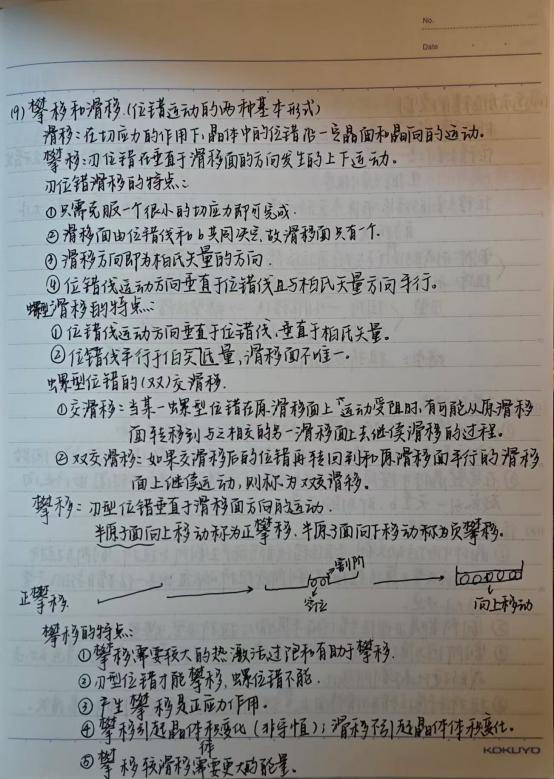 No.
Date
(9) 攀移和滑移.(位错运动的两种基本形式)
滑移:在切应力的作用下,晶体中的位错沿一定晶面和晶向的运动。
攀移:刃位错在垂直于滑移面的方向发生的上下运动。
刃位错滑移的特点:
①只需克服一个很小的切应力即可完成.
②滑移面由位错线和b共同决定,故滑移面只有一个.
③滑移方向即为柏氏矢量的方向.
④位错线运动方向垂直于位错线且与柏氏矢量方向平行。
螺型滑移的特点:
①位错线运动方向垂直于位错线,垂直于柏氏矢量。
②位错线平行于伯氏矢量,滑移面不唯一。
螺型位错的(双)交滑移.
①交滑移:当某一螺型位错在原滑移面上运动受阻时,有可能从原滑移
面转移到与之相交的另一滑移面上去继续滑移的过程。
②双交滑移:如果交滑移后的位错再转回到和原滑移面平行的滑移
面上继续运动,则称为双交滑移。
攀移:刃型位错垂直于滑移面方向的运动.
半原子面向上移动称为正攀移.半原子面向下移动称为负攀移。
割阶
正攀移.
空位
向上移动
攀移的特点:
①攀移需要较大的热激活过饱和有助于攀移.
②刃型位错才能攀移,螺位错不能.
③产生攀移是正应力作用。
④攀移引起晶体体积变化(非守恒);滑移不引起晶体体积变化。
⑤攀移较滑移需要更大的能量。
KOKUYO